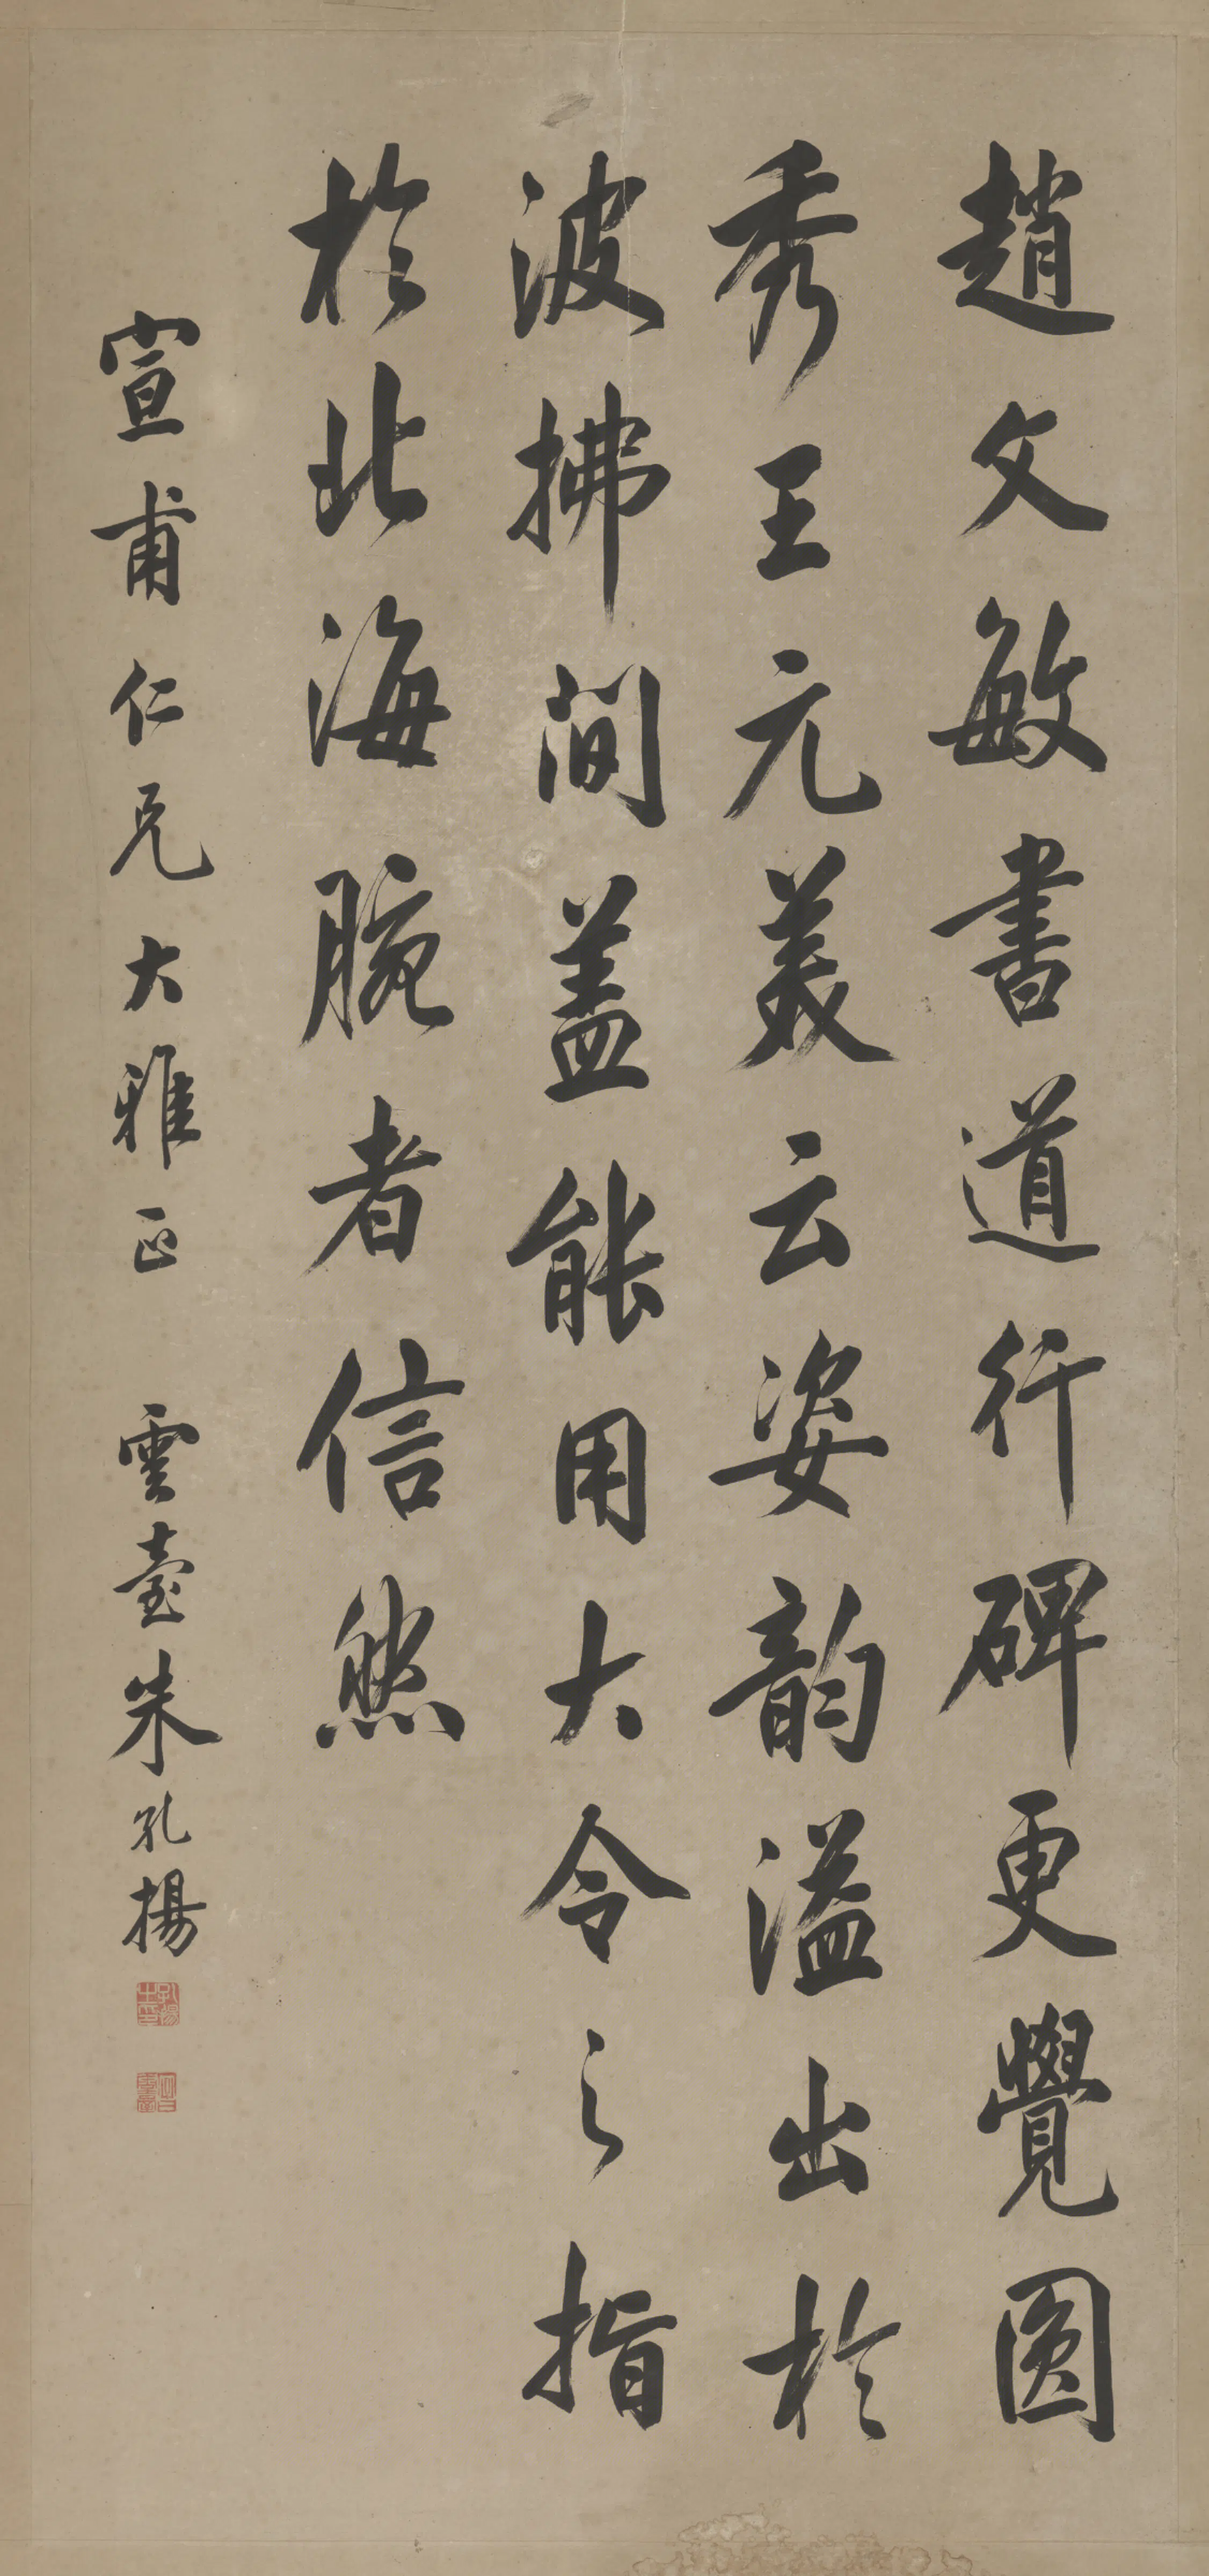 趙文敏書道行碑更覺圓
秀王元美云姿韵溢出於
波拂間蓋能用大令之指
於北海腕者信然
宣甫仁兄大雅正 雲臺朱孔揚
孔揚之印